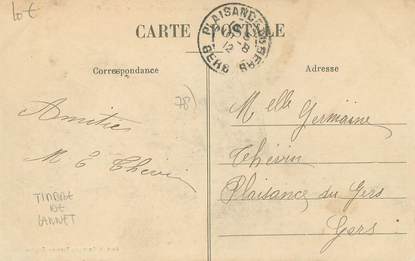 lot
CARTE POSTALE
PLAISANCE-DU-GERS
12-8
GERS
Correspondance
Adresse
78)
Amitiés
M E Thévin
TIMBRE
DE
LANNET
Melle Germaine
Thévin
Plaisance du Gers
Gers